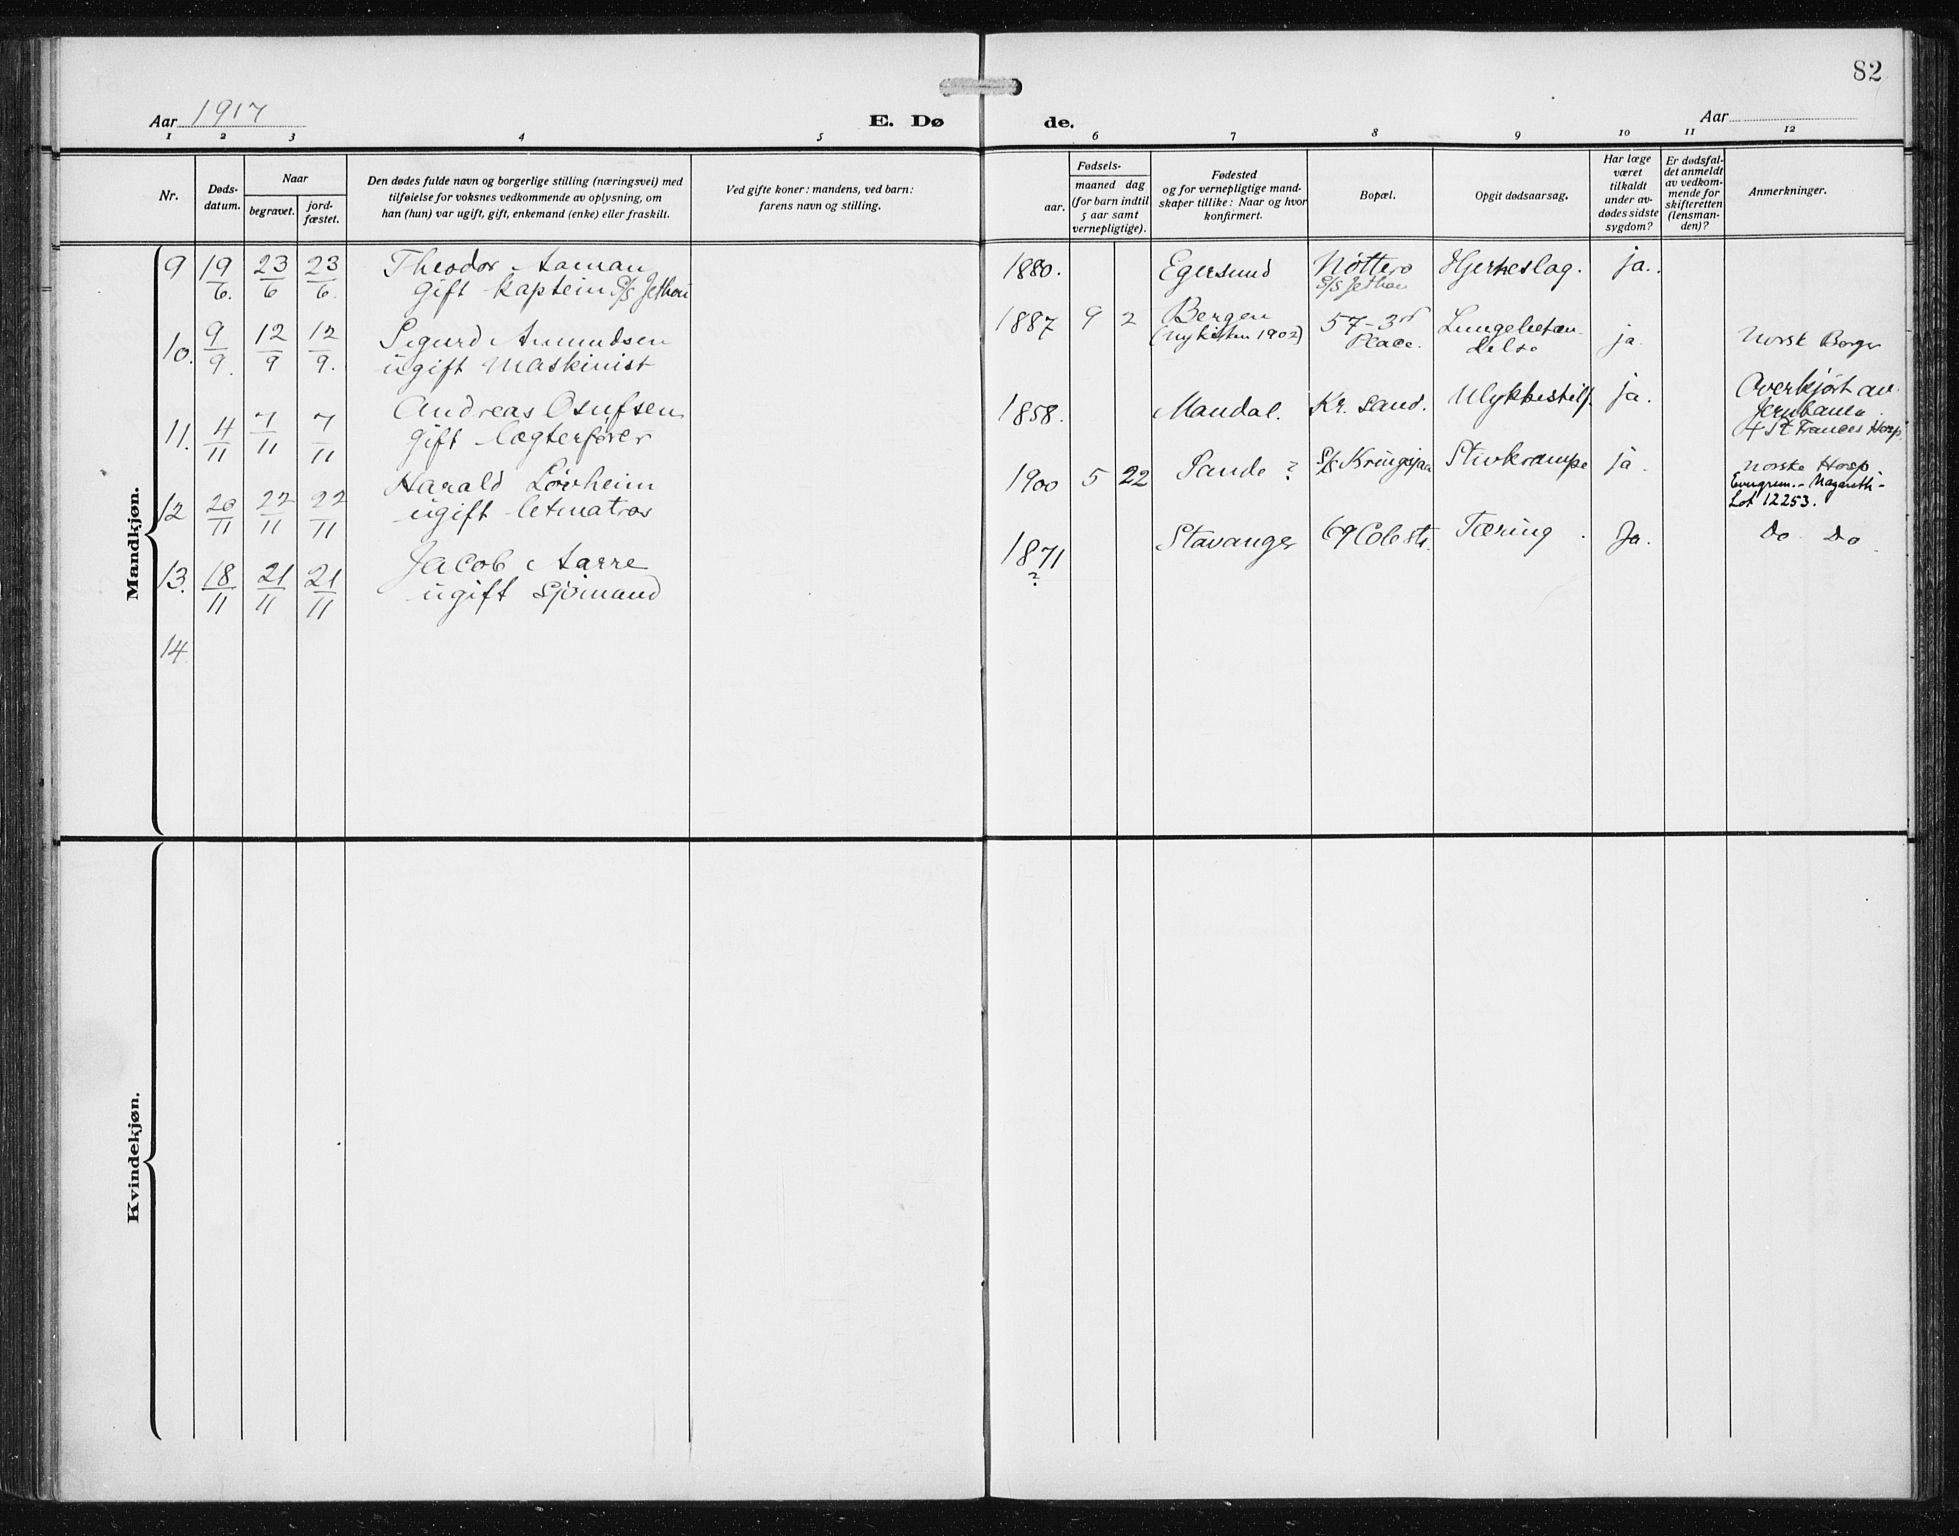 82
Aar 1917
E. Dø
de.
Aar
1 2 3 4 5 6 7 8 9 10 11 12
Nr.
Døds-
datum.
Naar
begravet.
jord-
fæstet.
Den dødes fulde navn og borgerlige stilling (næringsvei) med
tilføielse for voksnes vedkommende av oplysning, om
han (hun) var ugift, gift, enkemand (enke) eller fraskilt.
Ved gifte koner: mandens, ved barn:
farens navn og stilling.
Fødsels-
aar.
maaned dag
(for barn indtil
5 aar samt
vernepligtige).
Fødested
og for vernepligtige mand-
skaper tillike: Naar og hvor
konfirmert.
Bopæl.
Opgit dødsaarsag.
Har læge
været
tilkaldt
under av-
dødes sidste
sygdom?
Er dødsfal-
det anmeldt
av vedkom-
mende for
skifteretten
(lensman-
den)?
Anmerkninger.
Mandkjøn.
9 19/6. 23/6 23/6. Theodor Aaman
gift kaptein S/S Jethou
1880. Egersund Nøtterø Hjerteslag. ja.
S/S Jethou
10. 9/9. 12/9 12/9. Sigurd Amundsen
ugift Maskinist
1887 9 2 Bergen 57-3rd Lungebetæn-
(Nykirken 1902) Place. delse ja. Norsk Borger
11. 4/11 7/11 7/11 Andreas Osufsen
gift lægterfører
1858. Mandal. Kr. sand. Ulykkestilf. ja. Overkjørt av
Jernbanen.
+ St Frances Hosp.
12 20/11 22/11 22/11 Harald Lövheim
ugift letmatros
1900 5 22 Sande? S/S Kringsjaa Stivkrampe ja. Norske Hosp.
Evergreen. - Nazareth -
Lot 12253.
13. 18/11 21/11 21/11 Jacob Aarre
ugift Sjömand
1871 Stavanger 69 Cole str. Tæring. Ja. Do Do
?
14.
Kvindekjøn.